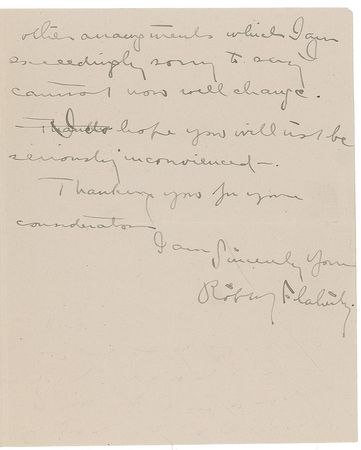 other arrangments which I am
exceedingly sorry to say
cannot now well change.
I do hope you will not be
seriously inconvienced —.
Thanking you for your
consideration
I am Sincerely Yours
Robt J Flaherty.